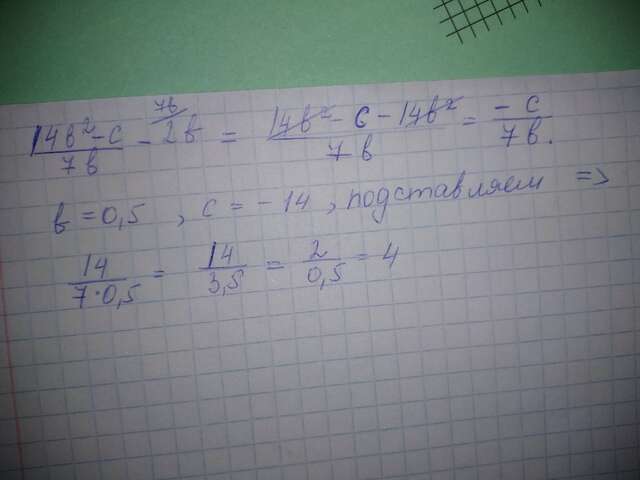 (14в² - с)/(7в) - 2в^(7в/) = (14в² - с - 14в²)/(7в) = (- с)/(7в).
в = 0,5 , с = - 14 , подставляем =>
14/(7·0,5) = 14/3,5 = 2/0,5 = 4